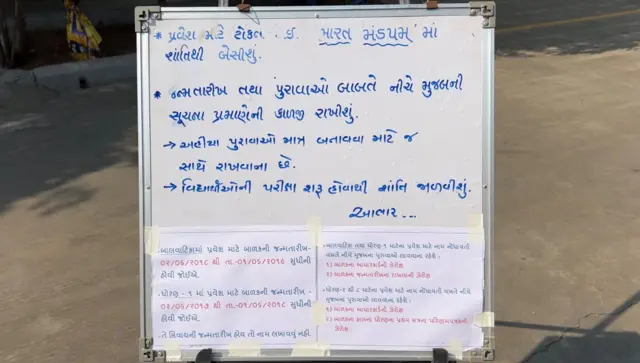 * પ્રવેશ માટે ટોકન . લઈ. ભારત મંડપમ્ માં
શાંતિથી બેસીશું.
* જન્મતારીખ તથા પુરાવાઓ બાબતે નીચે મુજબની
સૂચના પ્રમાણેની કાળજી રાખીશું.
→ અહીંયા પુરાવાઓ માત્ર બતાવવા માટે જ
સાથે રાખવાના છે.
→ વિદ્યાર્થીઓની પરીક્ષા શરૂ હોવાથી શાંતિ જાળવીશું.
આભાર ...
-બાલવાટિકામાં પ્રવેશ માટે બાળકની જન્મતારીખ-
થી તા.-૦૧/૦૬/૨૦૧૯ સુધીની
હોવી જોઈએ.
-ધોરણ - ૧ માં પ્રવેશ માટે બાળકની જન્મતારીખ -
૦૨/૦૬/૨૦૧૭ થી તા.-૦૧/૦૬/૨૦૧૮ સુધીની
હોવી જોઈએ.
-તે સિવાયની જન્મતારીખ હોય તો નામ લખાવવું નહી.
-બાલવાટિકા તથા ધોરણ-૧ માટેના પ્રવેશ માટે નામ નોંધાવતી
વખતે નીચે મુજબના પુરાવા લાવવાના રહેશે :
૧) બાળકના આધારકાર્ડની ઝેરોક્ષ
૨) બાળકના જન્મતારીખના દાખલાની ઝેરોક્ષ
-ધોરણ-૨ થી ૮ માટેના પ્રવેશ માટે નામ નોંધાવતી વખતે નીચે
મુજબના પુરાવા લાવવાના રહેશે :
૧) બાળકના આધારકાર્ડની ઝેરોક્ષ
૨) બાળકના ધોરણના પ્રથમ સત્રના પરિણામપત્રકની
ઝેરોક્ષ